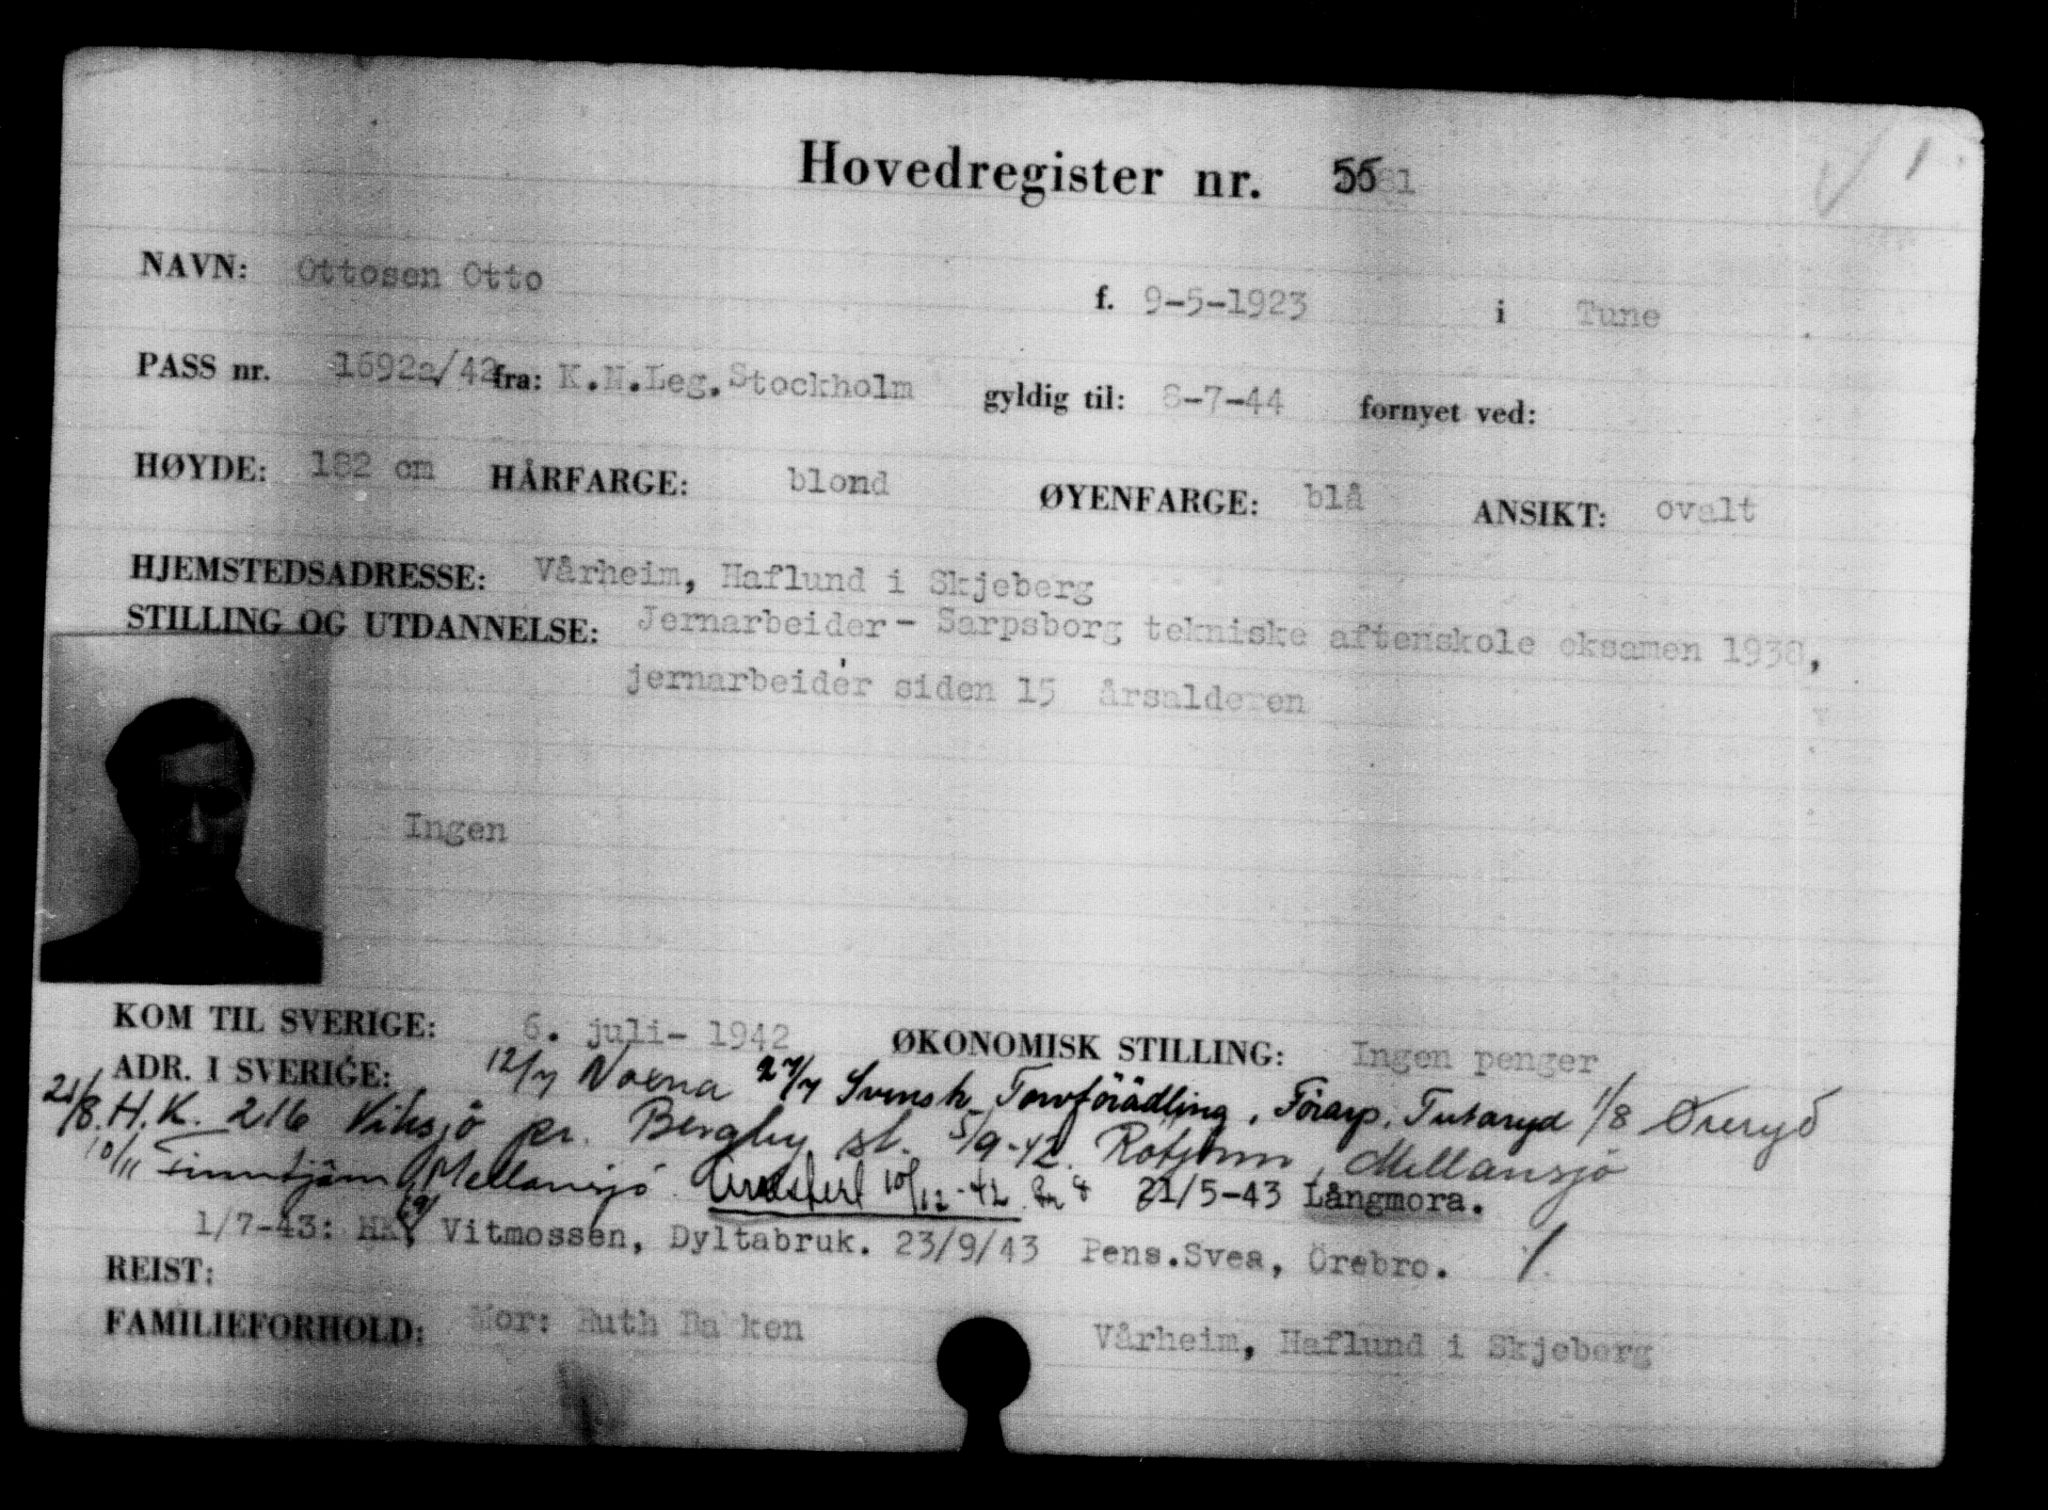 1
Hovedregister nr. 5581
NAVN: Ottosen Otto f. 9-5-1923 i Tune
PASS nr. 1692a/42 fra: K.N.Leg.Stockholm gyldig til: 8-7-44 fornyet ved:
HØYDE: 182 cm HÅRFARGE: blond ØYENFARGE: blå ANSIKT: ovalt
HJEMSTEDSADRESSE: Vårheim, Haflund i Skjeberg
STILLING OG UTDANNELSE: Jernarbeider - Sarpsborg tekniske aftenskole eksamen 1938,
jernarbeider siden 15 årsalderen
Ingen
KOM TIL SVERIGE: 6. juli- 1942 ØKONOMISK STILLING: Ingen penger
ADR. I SVERIGE: 12/7 Norna 27/7 Svensk Torvförädling, Förarp, Tutaryd 1/8 Øreryd
21/8. H.K. 216 Viksjö pr. Bergby st. 5/9-42. Rötjärn, Mellansjö
10/11 Finntjärn Mellansjö. Arrestert 10/12-42 21/5-43 Långmora.
1/7-43: HK, Vitmossen, Dyltabruk. 23/9/43 Pens.Svea, Örebro.
REIST:
FAMILIEFORHOLD: Mor: Ruth Bakken Vårheim, Haflund i Skjeberg